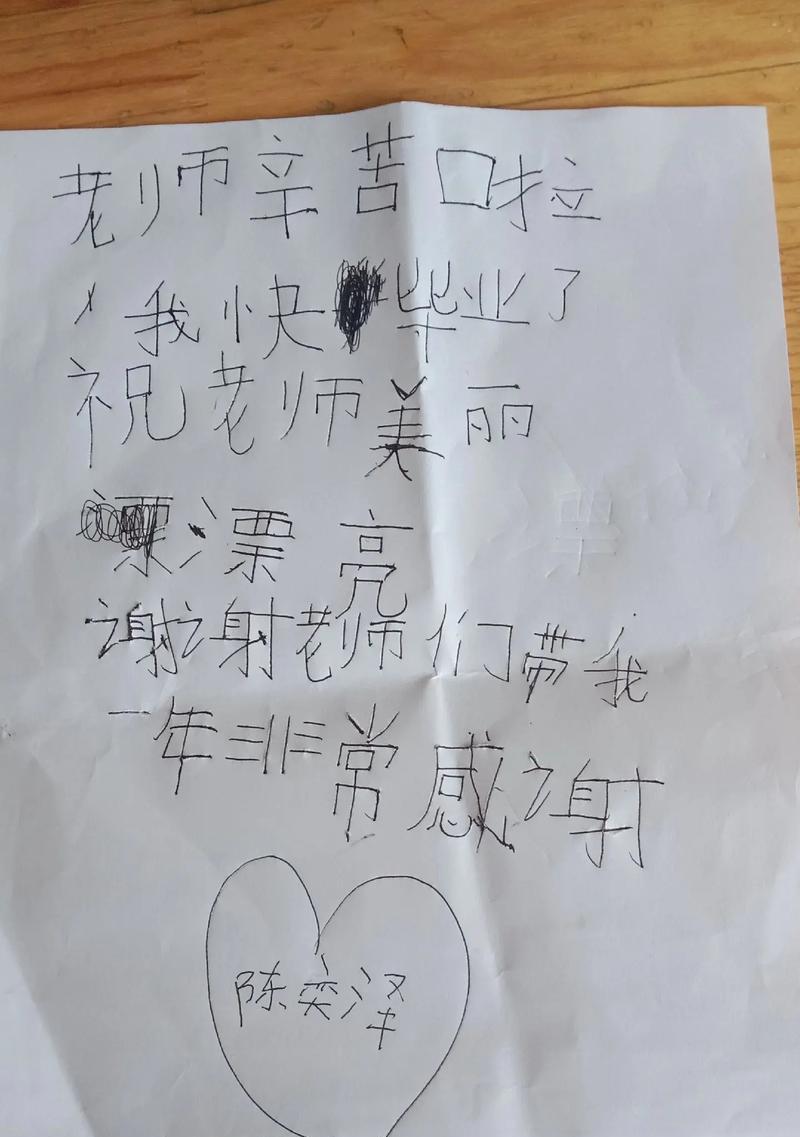 老师辛苦啦
我快毕业了
祝老师美丽
漂亮
谢谢老师们带我
一年非常感谢
陈奕泽